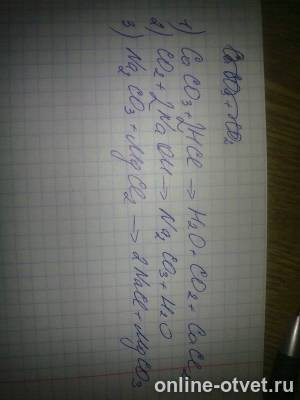 1) CaCO3+2HCl → H2O+CO2+CaCl2
2) CO2+2NaOH → Na2CO3+H2O
3) Na2CO3+MgCl2 → 2NaCl+MgCO3
online-otvet.ru